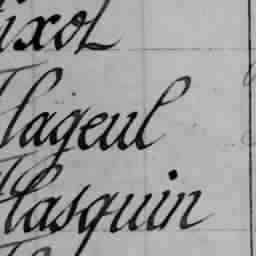 ixol
Flageul
Flasquin